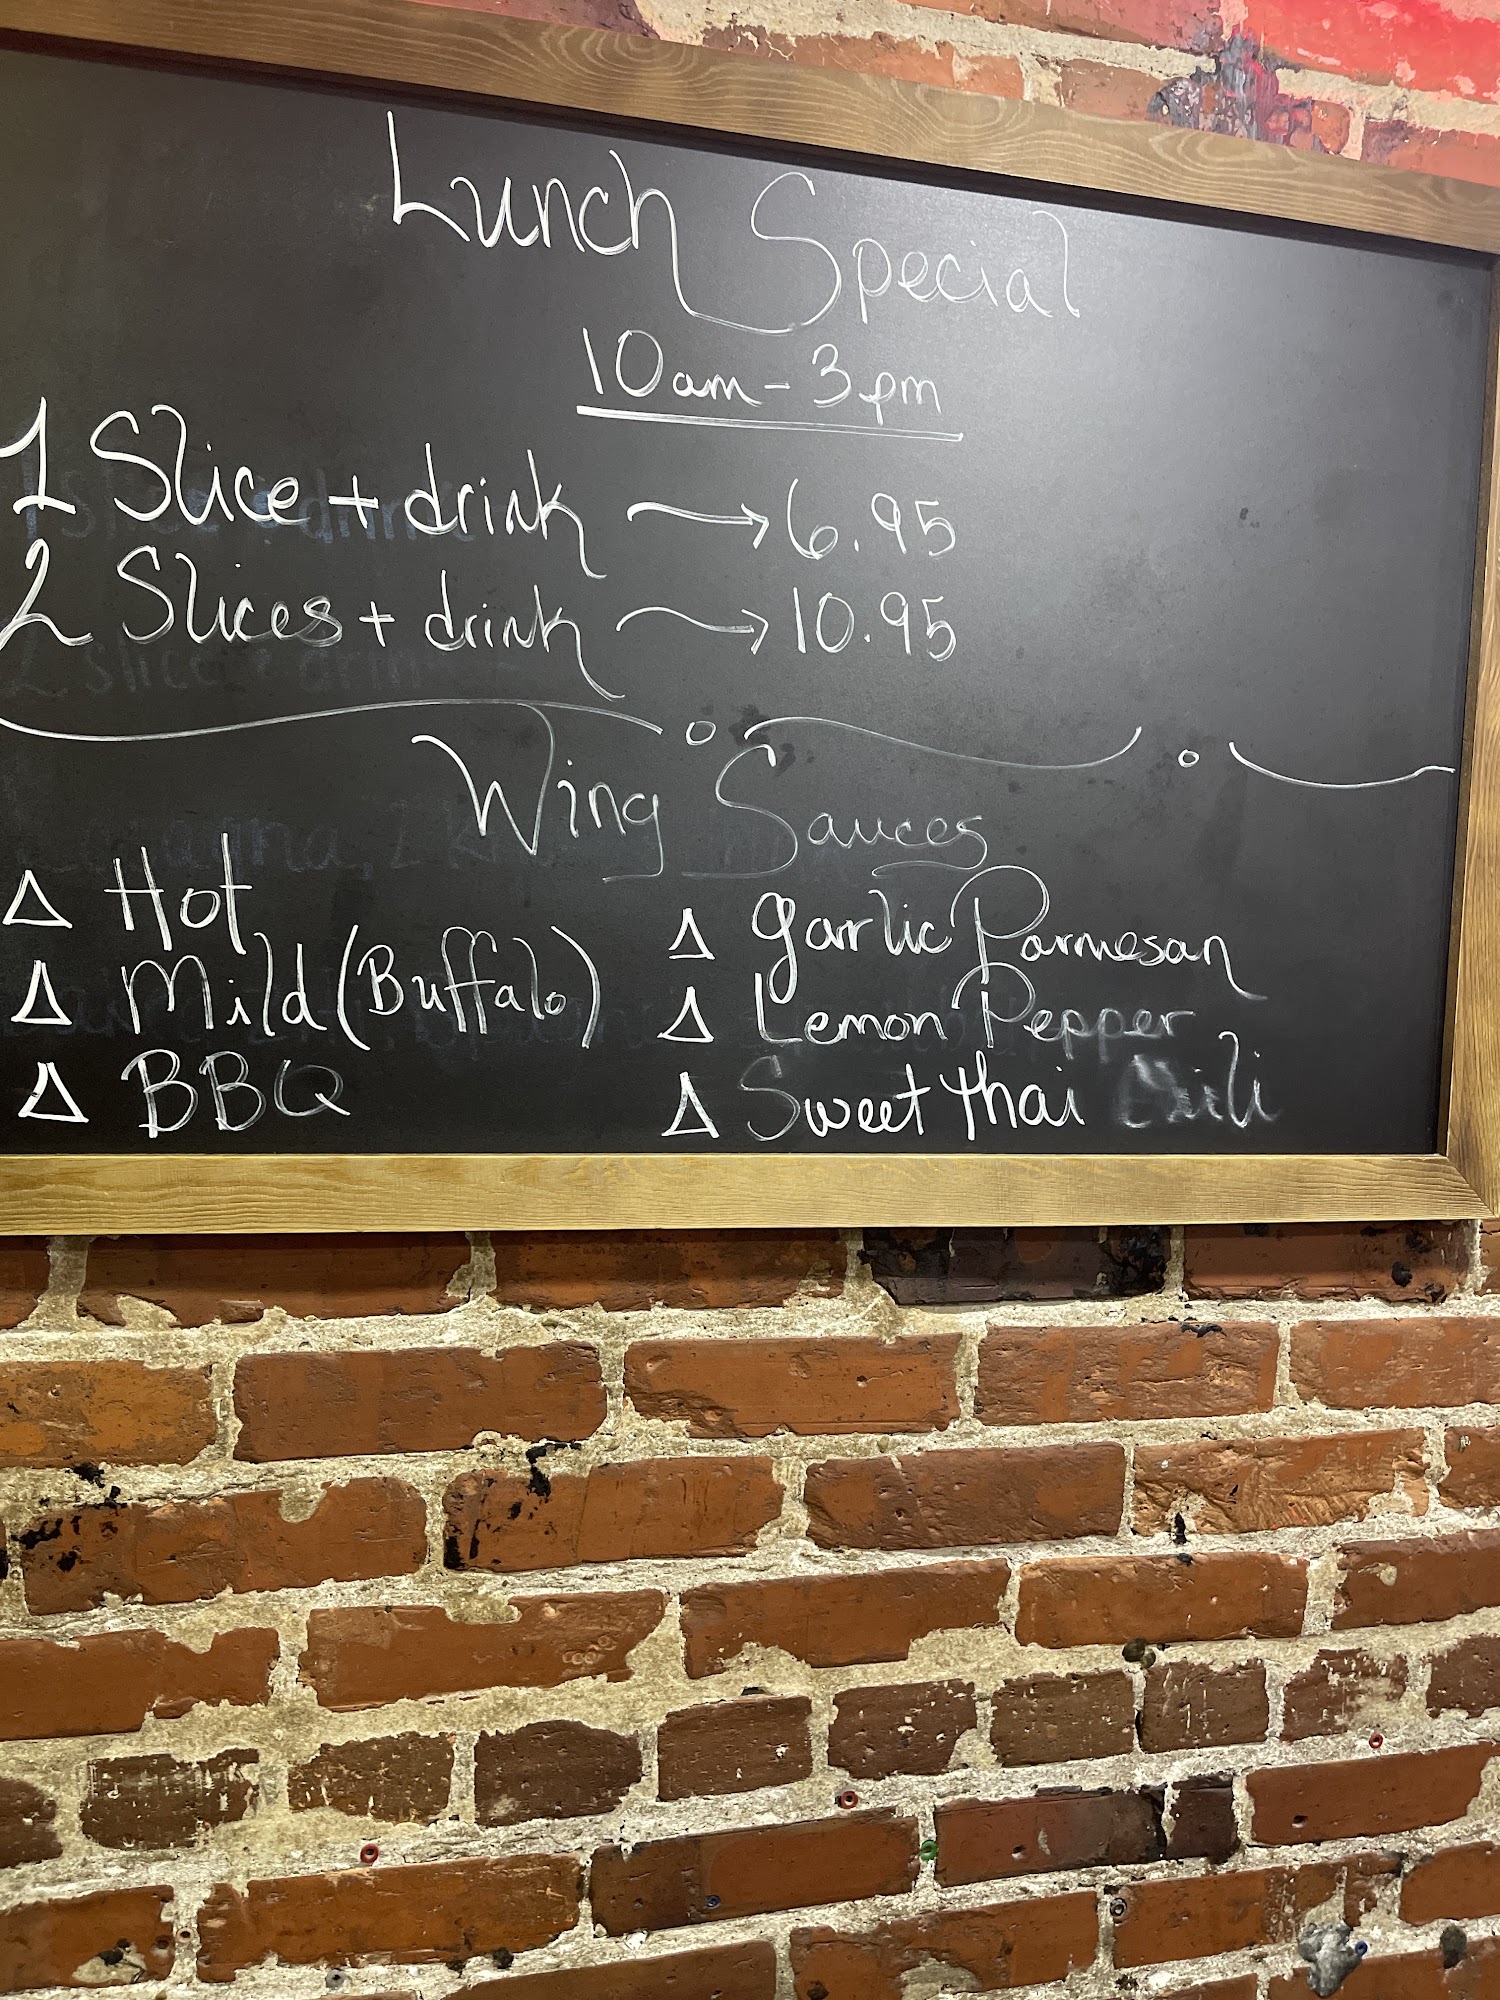 Lunch Special
10am - 3pm
1 Slice + drink → 6.95
2 Slices + drink → 10.95
Wing Sauces
Δ Hot
Δ Mild (Buffalo)
Δ BBQ
Δ garlic Parmesan
Δ Lemon Pepper
Δ Sweet thai Chili